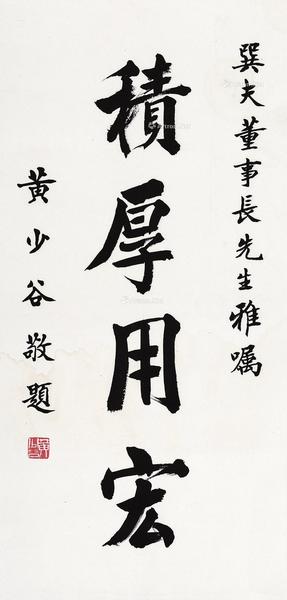 巽夫董事長先生雅嘱
積厚用宏
黄少谷敬題